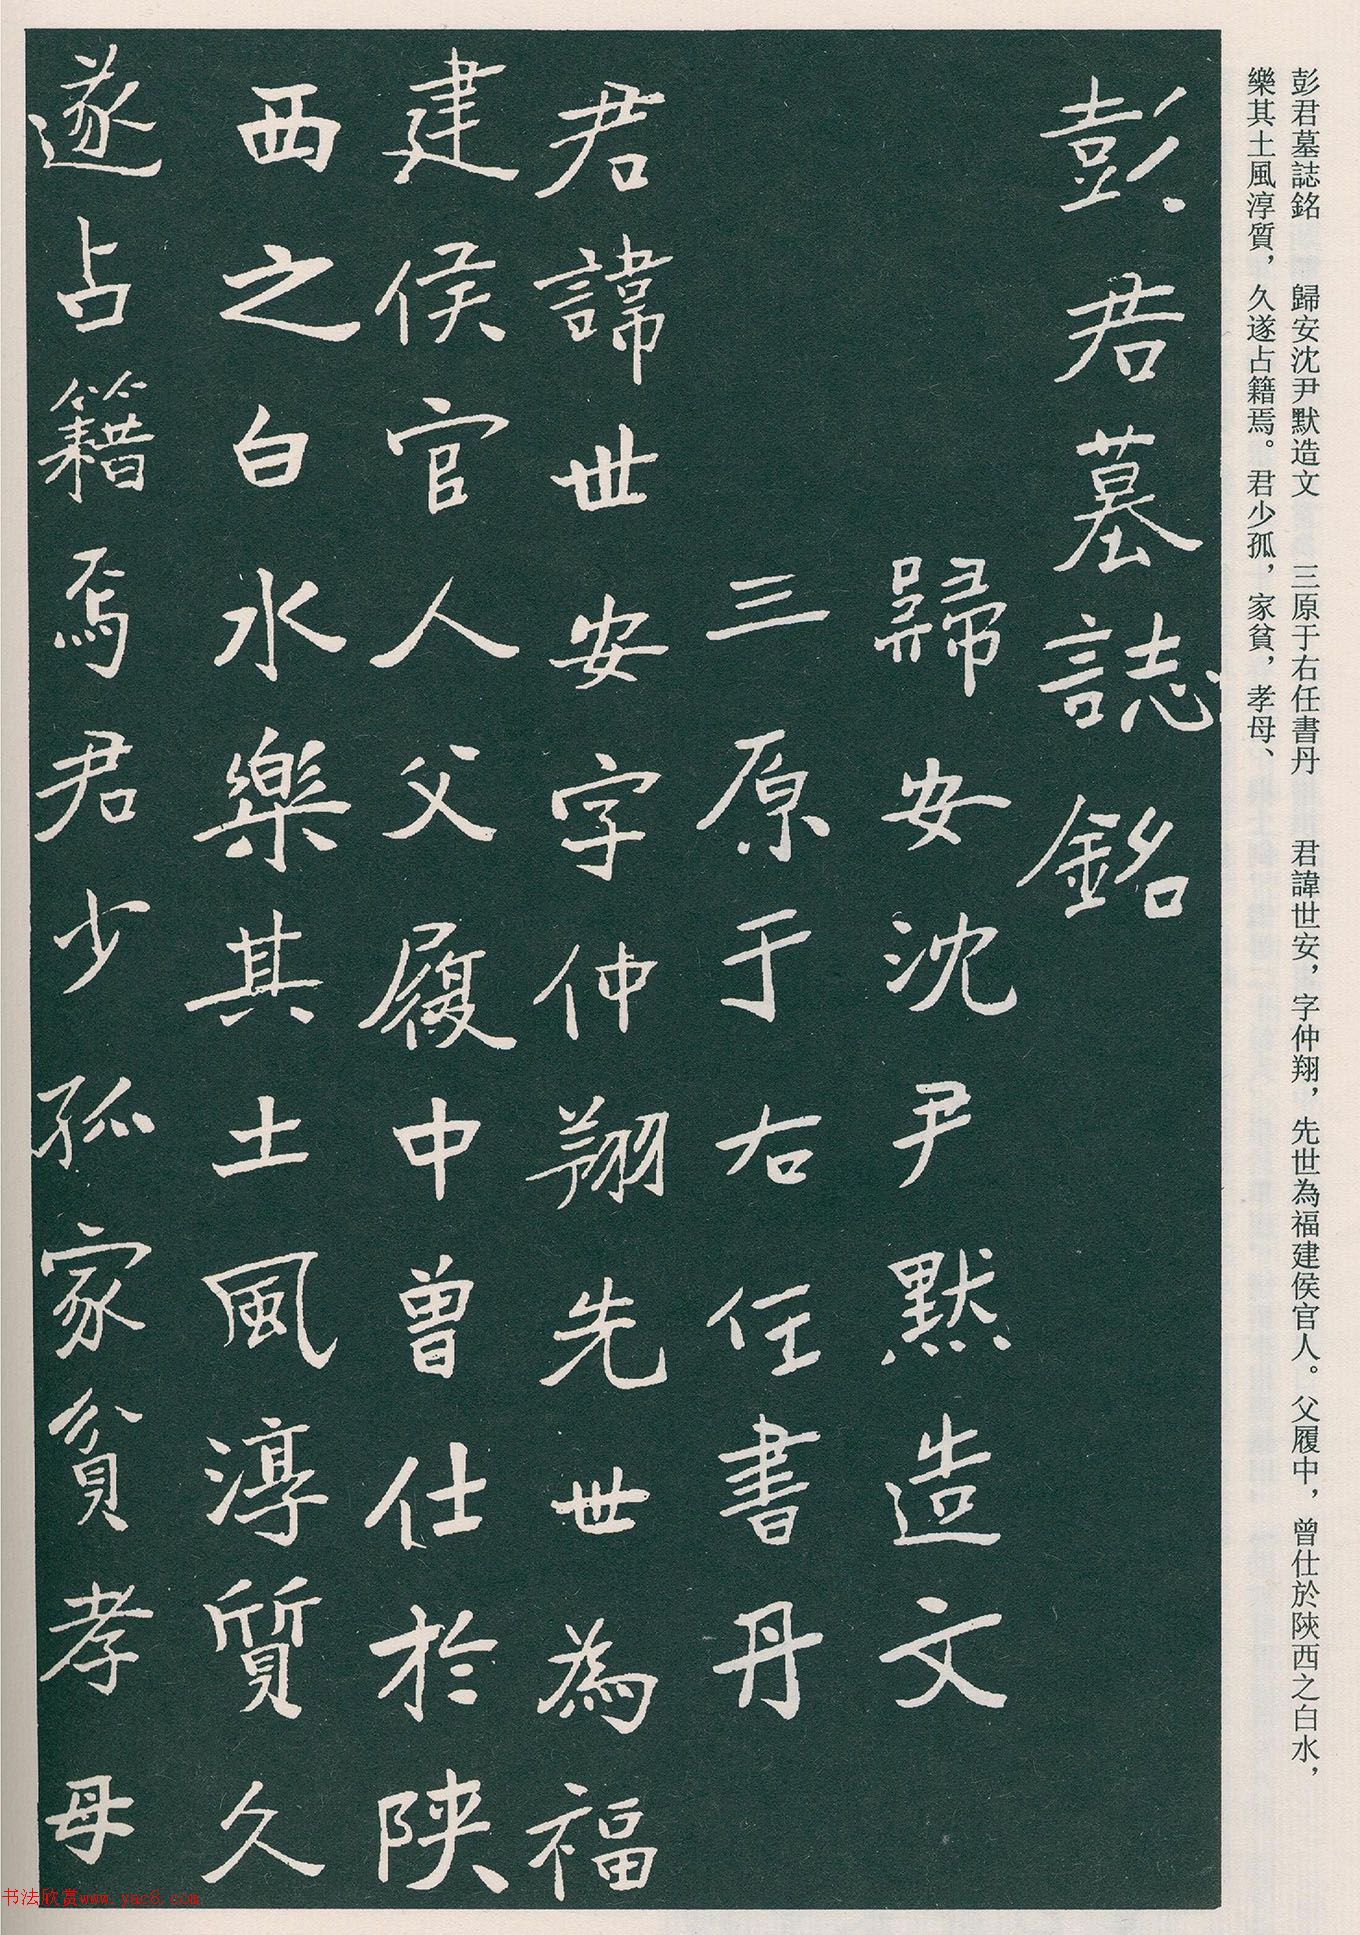 彭君墓誌銘　歸安沈尹默造文　三原于右任書丹　君諱世安，字仲翔，先世為福建侯官人。父履中，曾仕於陝西之白水，
樂其土風淳質，久遂占籍焉。君少孤，家貧，孝母、
彭君墓誌銘
歸安沈尹默造文
三原于右任書丹
君諱世安字仲翔先世為福
建侯官人父履中曾仕於陝
西之白水樂其土風淳質久
遂占籍焉君少孤家貧孝母
书法欣赏www.yac8.com